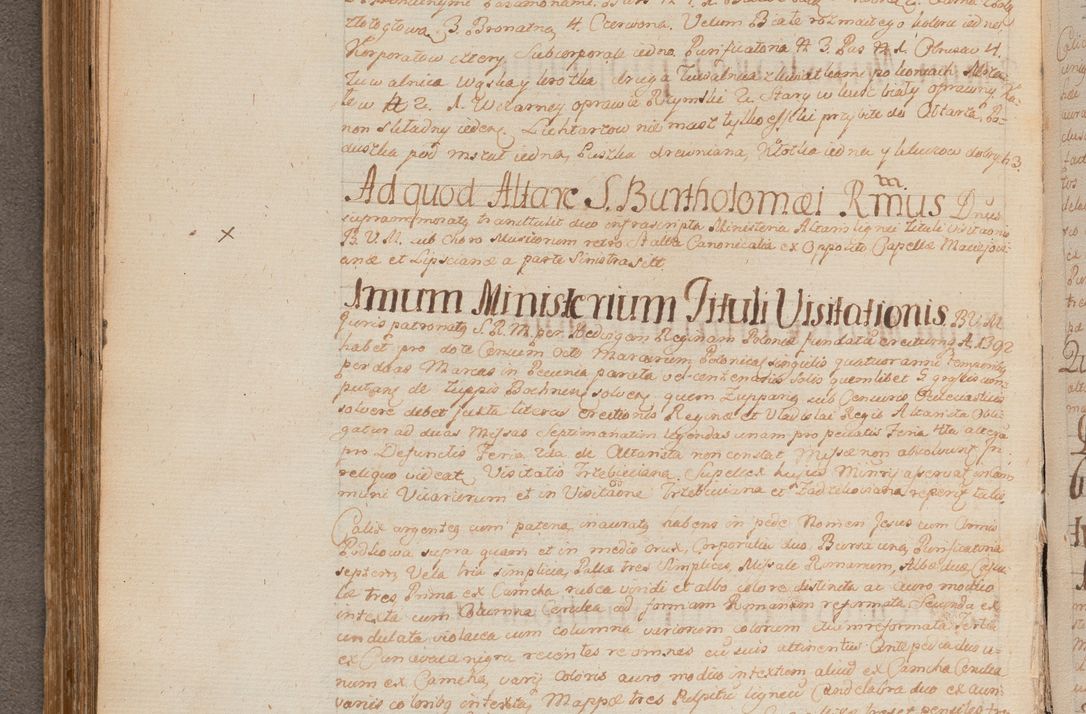 złotogłowa, 3. Bronatna, 4. Czerwona. Velum Białe rozmaitego koloru iedne,
Korporałow cztery, Subcorporale iedno, Purificatoria # 3. Pas # 1. Obrusow 4.
Tuwalnica Wąska y krotka i druga Tuwalnica z kwiatkami po koncach, Msza-
łow # 2. 1. W czarney oprawie Rzymski 2. Stary w kość biały oprawny, Ka-
non składny ieden, Lichtarzow nie masz tylko esski przybite do Ołtarza, Po-
duszka pod mszał iedna, Puszka drewniana, Kłotka iedna y kluczow dobrych 3.
Ad quod Altare S. Bartholomæi Rmus Dnus
supramemoratq transtulit duo infrascripta Ministeria Altaris lignei tituli Visitaonis
B. V. M. sub choro Musicorum retro Stalla Canonicalia ex Opposito Capellæ Macieiovi-
anæ et Lipscianæ a parte Sinistra Sett.
Imum Ministerium Tituli Visitationis B. V. M.
Juris patronatq S. R. M. per Hedvigam Reginam Poloniæ fundata erectumq A. 1392
habet pro dote Censum Octo Marcarum Polonica singulis quatuor anni Temporibq
per duas Marcas in Pecunia parata vel centenariis Salis quemlibet 5 grossis com-
putans de Zuppis Bochnens solven, quem Zupparig sub Censuris Ecclesiasticis
solvere debet juxta literas erectionis Reginæ et Vladislai Regis Altarista Obli-
gatur ad duas Missas Septimanatim legendas unam pro peccatis Feria 4ta alteram
pro Defunctis Feria 2da de Altarista non constat Missæ non absolvunt In
reliquo videat Visitatio Trzebiciana. Supellex hujus Minrij aservat in Com-
muni Vicariorum et in Visitaone Trzebiciana et Zadzikoviana reperit talis.
Calix argenteq cum patena, inauratq habens in pede Nomen Jesus cum Armis
Podkowa supra quam et in medio crux, Corporalia duo, Bursa una, Purificatoria
septem, Vela tria simplicia, Palla tres simplices, Missale Romanum, Albæ duæ Casu-
læ tres Prima ex Camcha rubea viridi et albo colore distincta ac auro modico
intexta cum Columna Cerulea ad formam Romanam reformata, Secunda ex
undulata violacea cum columna variorum colorum etiam reformata Tertia
ex Canavacia nigra recentes re omnes cum suis attinentiis Antepedia duo u-
num ex Camcha, varij coloris auro modico intextum aliud ex Camcha Cerulea
varis coloribq intexta, Mappæ tres Pulpitu ligneu Candelabra duo ex auri-